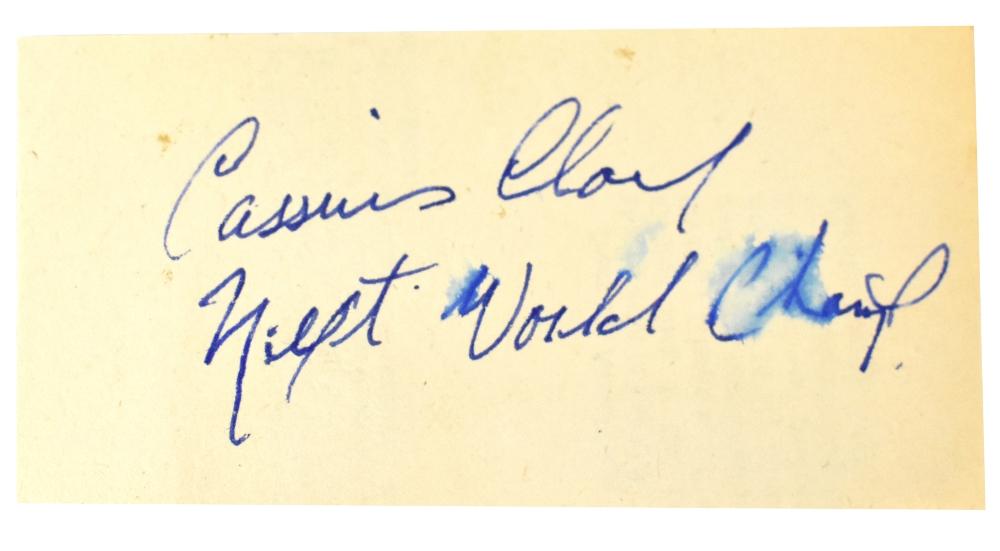 Cassius Clay
Next World Champ.